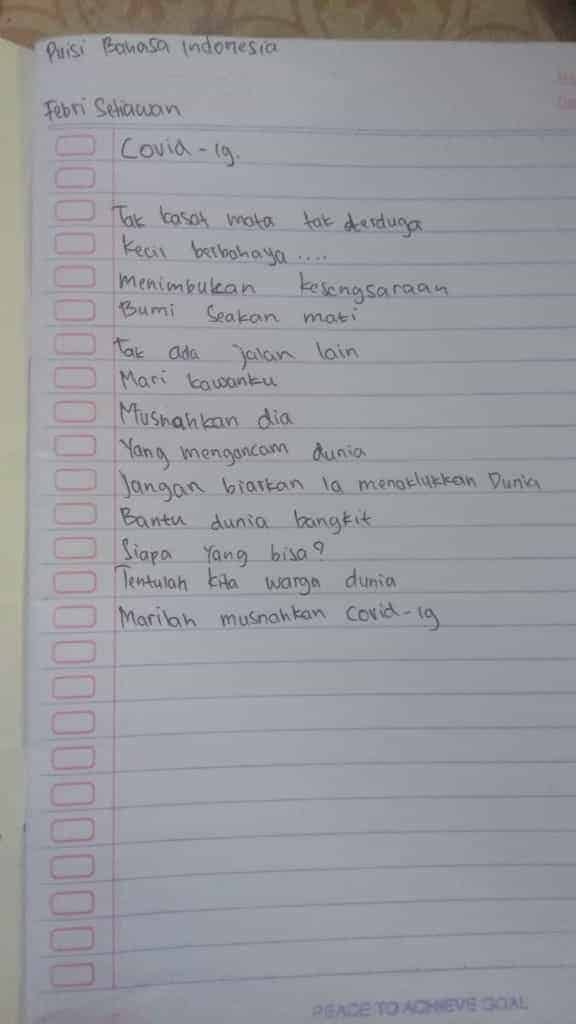 Puisi Bahasa Indonesia
Febri Setiawan
Covid-19.
Tak kasat mata tak terduga
Kecil berbahaya ....
Menimbukan kesengsaraan
Bumi Seakan mati
Tak ada jalan lain
Mari kawanku
Musnahkan dia
Yang mengancam dunia
Jangan biarkan ia menaklukkan Dunia
Bantu dunia bangkit
Siapa yang bisa?
Tentulah kita warga dunia
Marilah musnahkan Covid-19
PEACE TO ACHIEVE GOAL